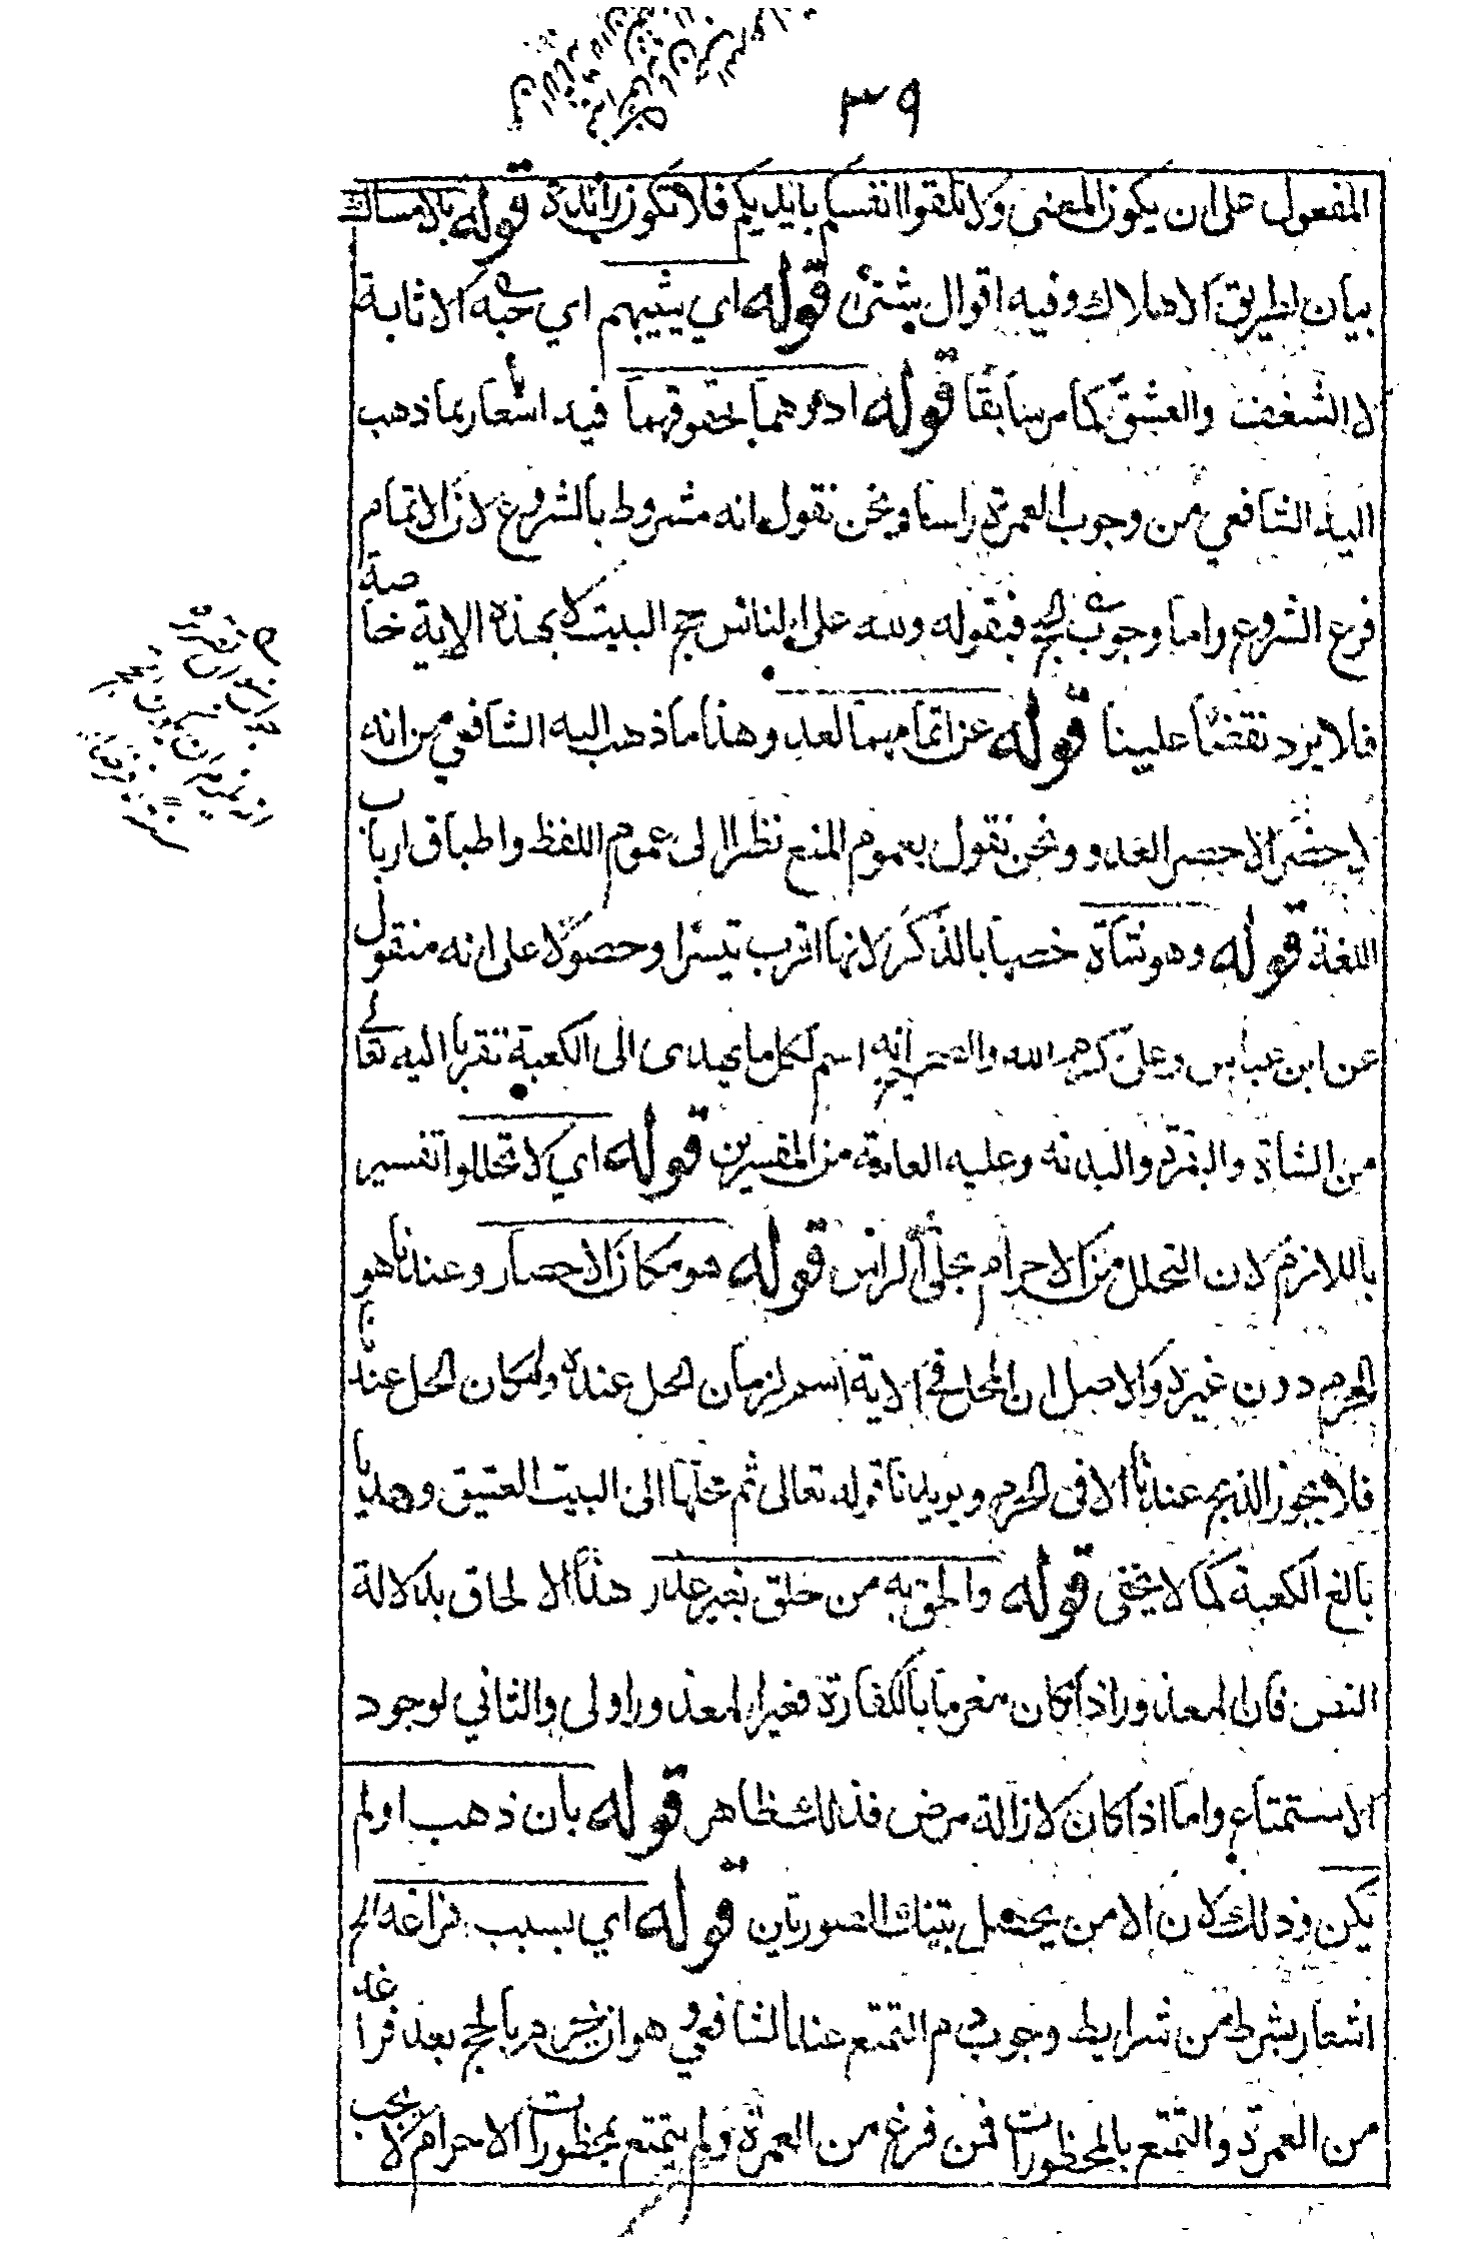 ٣٩
المفعول على ان يكون المعنى ولا تلقوا انفسكم بايديكم فلا تكون زائدة قوله بالامساك
بيان لطريق الاهلاك وفيه اقوال شتى قوله اي يثيبهم اي حبه الاثابة
لا الشغف والعشق كما مر سابقا قوله ادوهما بحقوقهما فيه اشعار بما ذهب
اليه الشافعي من وجوب العمرة راسا ونحن نقول انه مشروط بالشروع لان الاتمام
فرع الشروع واما وجوب الحج فبقوله ولله على الناس حج البيت لا بهذه الاية خاصة
فلا يرد نقضا علينا قوله عن اتمامهما لعدو وهذا ما ذهب اليه الشافعي من انه
لا حصر الا حصر العدو ونحن نقول بعموم المنع نظرا الى عموم اللفظ واطباق ارباب
اللغة قوله وهو شاة خصها بالذكر لانها اقرب تيسرا وحصولا على انه منقول
عن ابن عباس وعلى كرمهم الله والصحيح انه اسم لكل ما يهدى الى الكعبة تقربا اليه تعالى
من الشاة والبقرة والبدنة وعليه العامة من المفسرين قوله اي لا تحللوا تفسير
باللازم لان التحلل من الاحرام بحلق الراس قوله هو مكان الاحصار وعندنا هو
الحرم دون غيره والاصل ان المحل في الاية اسم لزمان الحل عنده ولمكان الحل عندنا
فلا يجوز الذبح عندنا الا في الحرم ويويدنا قوله تعالى ثم محلها الى البيت العتيق وهديا
بالغ الكعبة كما لا يخفى قوله والحق به من حلق بغير عذر هذا الالحاق بدلالة
النص فان المعذور اذا كان مغرما بالكفارة فغير المعذور اولى والثاني لوجود
الاستمتاع واما اذا كان لازالة مرض فذلك ظاهر قوله بان ذهب او لم
يكن وذلك لان الامن يحصل بتينك الصورتين قوله اي بسبب فراغه الخ
اشعار بشرط من شرايط وجوب دم التمتع عند الشافعي وهو ان يحرم بالحج بعد فراغه
من العمرة والتمتع بالمحظورات فمن فرغ من العمرة ولم يتمتع بمحظورات الاحرام لا يجب